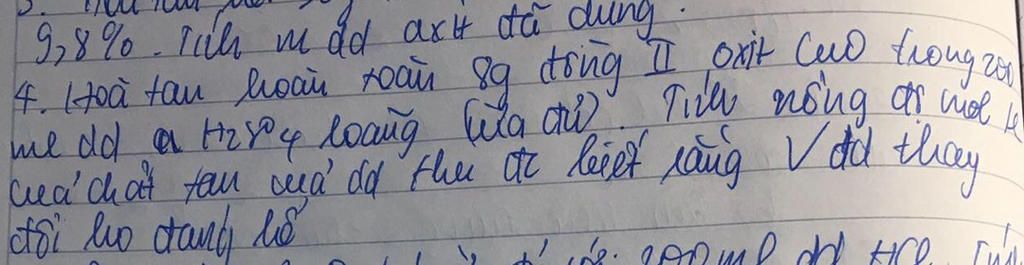 9,8%. Tính m dd axit đã dùng.
4. Hoà tan hoàn toàn 8g đồng II oxit CuO trong 200
ml dd H2SO4 loãng (vừa đủ). Tính nồng độ mol
của chất tan của dd thu đc biết rằng V dd thay
đổi ko đáng kể
200 ml dd HCl. Tính